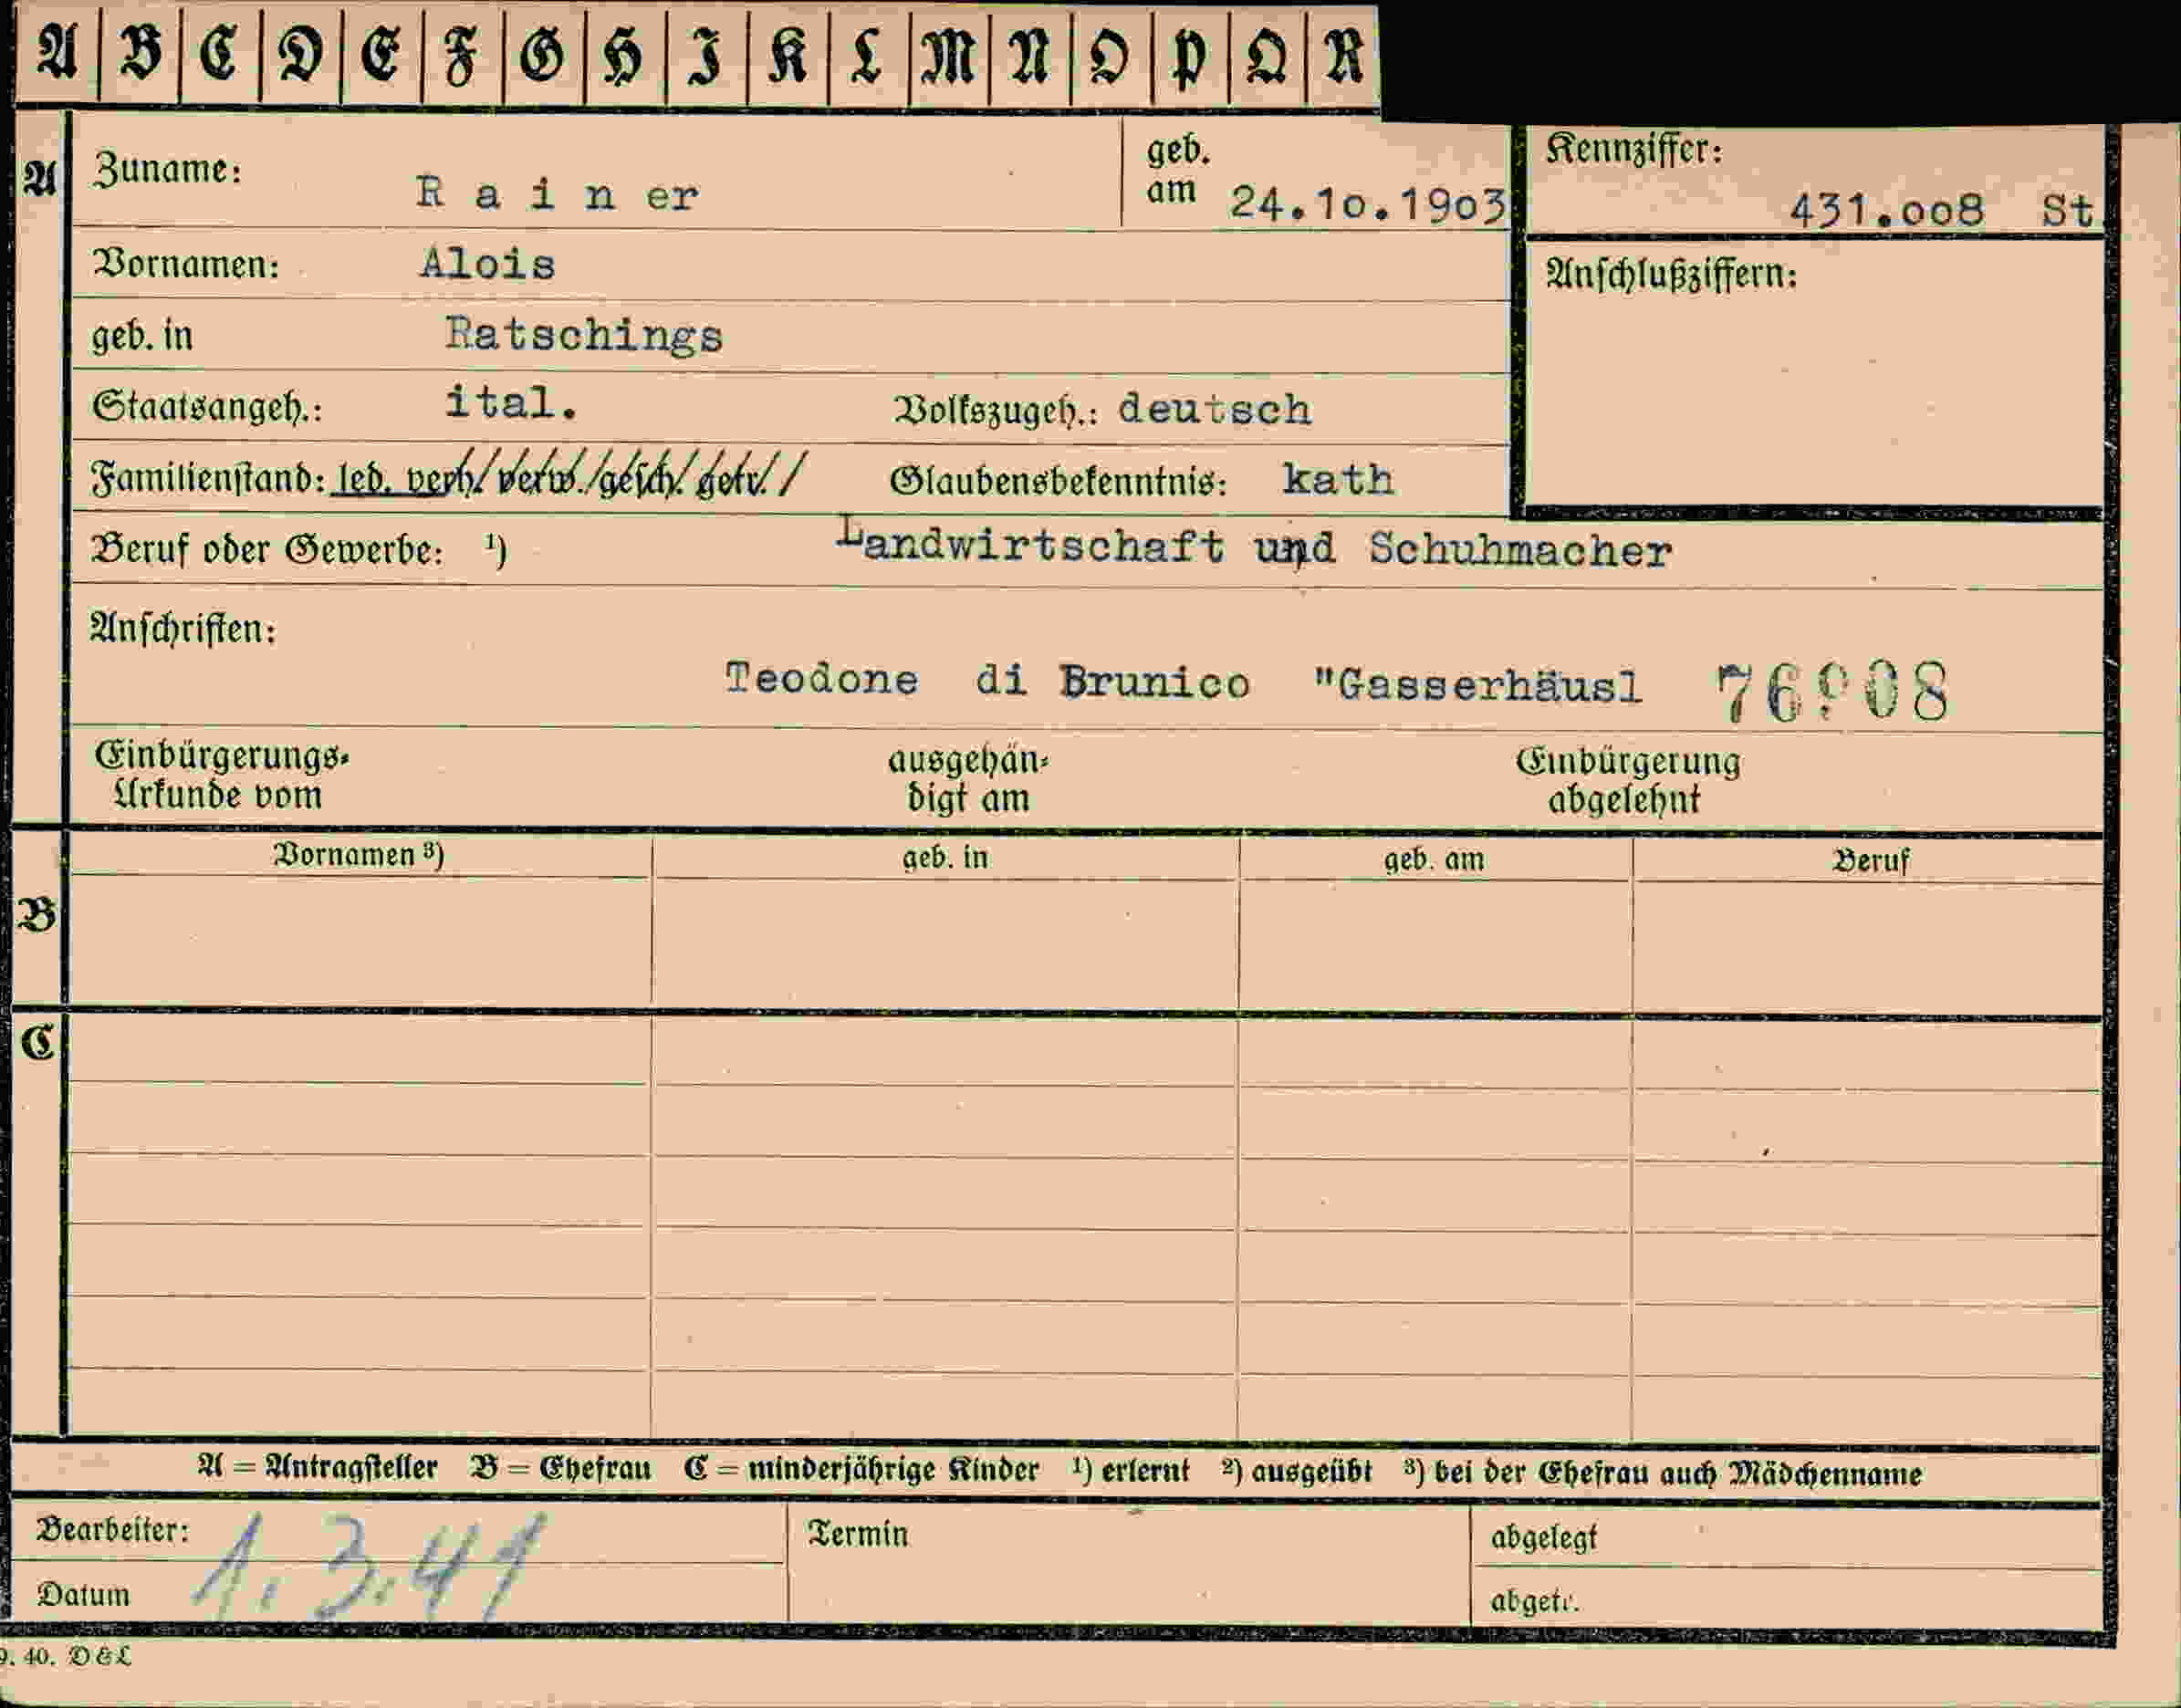 A B C D E F G H I K L M N O P Q R
A Zuname: Rainer geb. am 24.10.1903 Kennziffer: 431.008 St
Vornamen: Alois Anschlußziffern:
geb. in Ratschings
Staatsangeh.: ital. Volkszugeh.: deutsch
Familienstand: led. verh./verw./gesch./getr./ Glaubensbekenntnis: kath
Beruf oder Gewerbe: ¹) Landwirtschaft und Schuhmacher
Anschriften:
Teodone di Brunico "Gasserhäusl
Einbürgerungs- ausgehän- Einbürgerung
Urkunde vom digt am abgelehnt
Vornamen ³) geb. in geb. am Beruf
B
C
A = Antragsteller B = Ehefrau C = minderjährige Kinder ¹) erlernt ²) ausgeübt ³) bei der Ehefrau auch Mädchenname
Bearbeiter: Termin abgelegt
Datum 1.3.41 abgetr.
9. 40. D & L